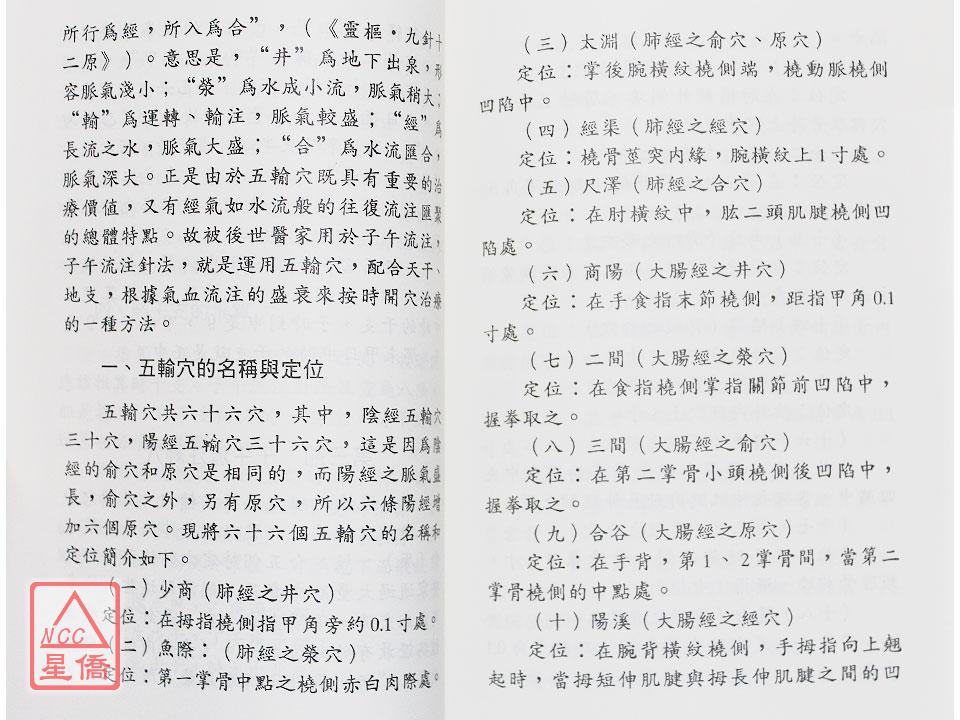 所行爲經，所入爲合”，（《靈樞·九針十
二原》）。意思是，“井”爲地下出泉，形
容脈氣淺小；“滎”爲水成小流，脈氣稍大；
“輸”爲運轉、輸注，脈氣較盛；“經”爲
長流之水，脈氣大盛；“合”爲水流匯合，
脈氣深大。正是由於五輸穴既具有重要的治
療價值，又有經氣如水流般的往復流注匯聚
的總體特點。故被後世醫家用於子午流注，
子午流注針法，就是運用五輸穴，配合天干、
地支，根據氣血流注的盛衰來按時開穴治療
的一種方法。
一、五輸穴的名稱與定位
五輸穴共六十六穴，其中，陰經五輸穴
三十穴，陽經五輸穴三十六穴，這是因爲陰
經的俞穴和原穴是相同的，而陽經之脈氣盛
長，俞穴之外，另有原穴，所以六條陽經增
加六個原穴。現將六十六個五輸穴的名稱和
定位簡介如下。
（一）少商（肺經之井穴）
定位：在拇指橈側指甲角旁約0.1寸處。
（二）魚際：（肺經之滎穴）
定位：第一掌骨中點之橈側赤白肉際處。
（三）太淵（肺經之俞穴、原穴）
定位：掌後腕橫紋橈側端，橈動脈橈側
凹陷中。
（四）經渠（肺經之經穴）
定位：橈骨莖突內緣，腕橫紋上1寸處。
（五）尺澤（肺經之合穴）
定位：在肘橫紋中，肱二頭肌腱橈側凹
陷處。
（六）商陽（大腸經之井穴）
定位：在手食指末節橈側，距指甲角0.1
寸處。
（七）二間（大腸經之滎穴）
定位：在食指橈側掌指關節前凹陷中，
握拳取之。
（八）三間（大腸經之俞穴）
定位：在第二掌骨小頭橈側後凹陷中，
握拳取之。
（九）合谷（大腸經之原穴）
定位：在手背，第1 2掌骨間，當第二
掌骨橈側的中點處。
（十）陽溪（大腸經之經穴）
定位：在腕背橫紋橈側，手拇指向上翹
起時，當拇短伸肌腱與拇長伸肌腱之間的凹
NCC
星僑